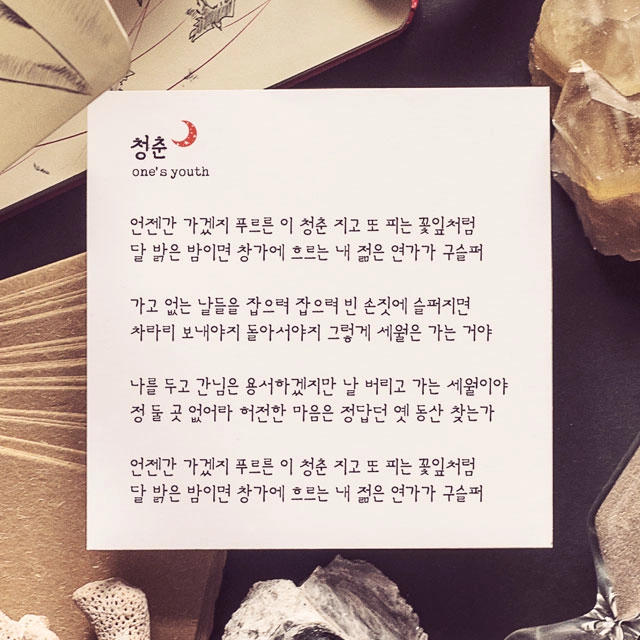 청춘
one's youth
언젠간 가겠지 푸르른 이 청춘 지고 또 피는 꽃잎처럼
달 밝은 밤이면 창가에 흐르는 내 젊은 연가가 구슬퍼
가고 없는 날들을 잡으려 잡으려 빈 손짓에 슬퍼지면
차라리 보내야지 돌아서야지 그렇게 세월은 가는 거야
나를 두고 간님은 용서하겠지만 날 버리고 가는 세월이야
정 둘 곳 없어라 허전한 마음은 정답던 옛 동산 찾는가
언젠간 가겠지 푸르른 이 청춘 지고 또 피는 꽃잎처럼
달 밝은 밤이면 창가에 흐르는 내 젊은 연가가 구슬퍼